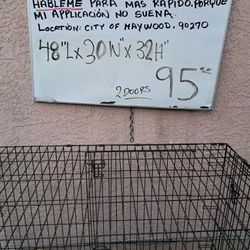 HABLEME PARA MAS RAPIDO, PORQUE
MI APPLICACION NO SUENA.
LOCATION: CITY OF MAYWOOD. 90270
48"L X 30"N X 32H"
2 DOORS 95